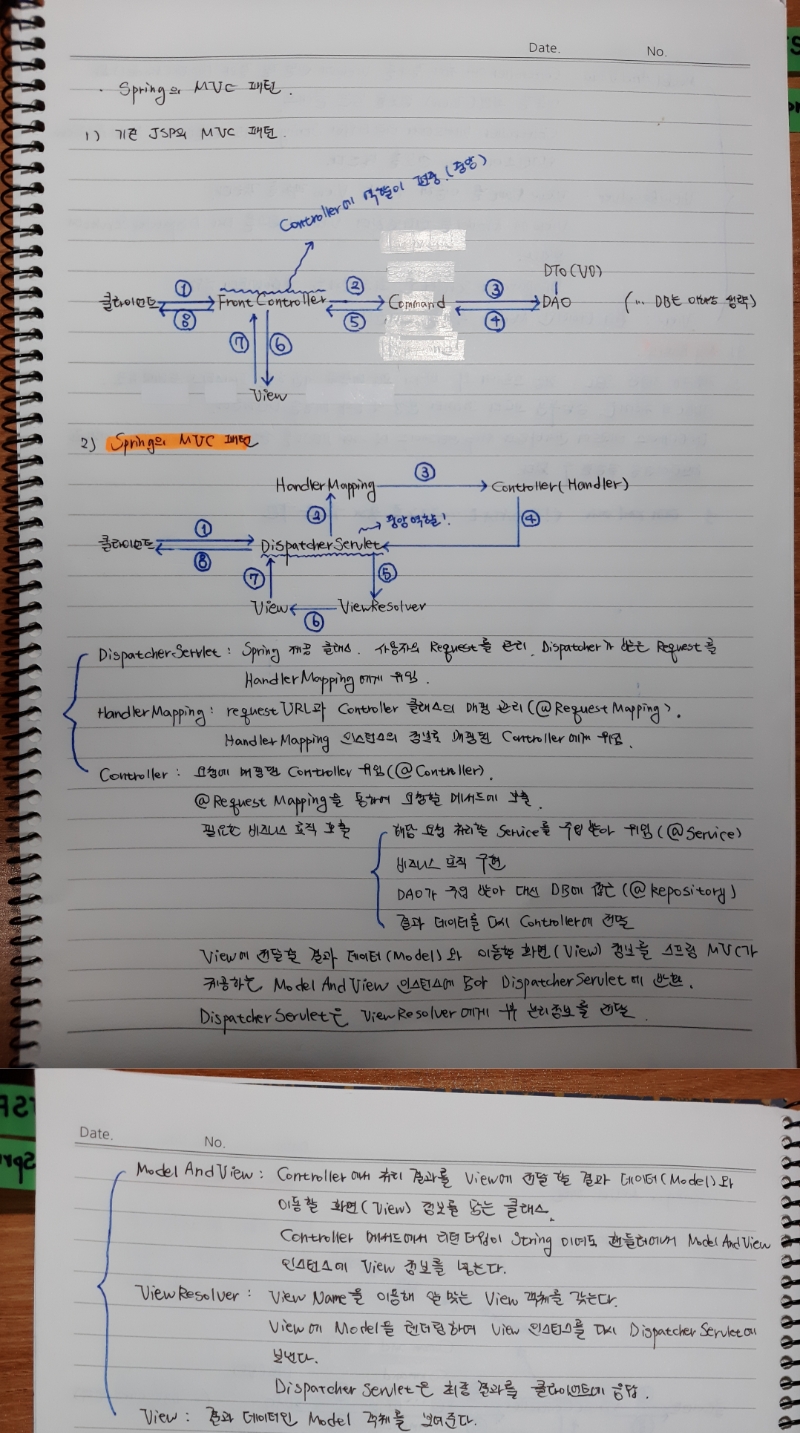 Date. No.
· Spring의 MVC 패턴.
1) 기존 JSP의 MVC 패턴.
Controller에 역할이 편중.(중앙)
DTO(VO)
클라이언트 ① ⑧ FrontController ② ⑤ Command ③ ④ DAO
⑦ ⑥
View
2) Spring의 MVC 패턴
HandlerMapping ③ Controller(Handler)
② 중앙역할! ④
클라이언트 ① ⑧ DispatcherServlet
⑦ ⑤
View ⑥ ViewResolver
DispatcherServlet : Spring 제공 클래스. 사용자의 Request를 관리. Dispatcher가 받은 Request를
HandlerMapping에게 위임.
HandlerMapping : request URL과 Controller 클래스의 매핑 관리(@RequestMapping).
HandlerMapping 인스턴스의 정보로 매핑된 Controller에게 위임.
Controller : 요청에 매핑된 Controller 위임(@Controller).
@Request Mapping을 통하여 요청할 메서드에 호출.
필요한 비즈니스 로직 호출
해당 요청 처리할 Service를 주입 받아 위임(@Service)
비즈니스 로직 구현
DAO가 주입 받아 대신 DB에 접근(@Repository)
결과 데이터를 다시 Controller에 전달
View에 전달할 결과 데이터(Model)와 이동할 화면(View) 정보를 스프링 MVC가
제공하는 Model And View 인스턴스에 담아 DispatcherServlet에 반환.
DispatcherServlet은 ViewResolver에게 뷰 논리정보를 전달.
Date. No.
Model And View : Controller에서 처리 결과를 View에 전달 할 결과 데이터(Model)와
이동할 화면(View) 정보를 담는 클래스.
Controller 메서드에서 리턴 타입이 String 이여도 핸들러에서 Model And View
인스턴스에 View 정보를 넣는다.
ViewResolver : View Name을 이용해 알맞는 View 객체를 갖는다.
View에 Model을 렌더링하여 View 인스턴스를 다시 DispatcherServlet에
보낸다.
Dispatcher Servlet은 최종 결과를 클라이언트에 응답.
View : 결과 데이터인 Model 객체를 보여준다.